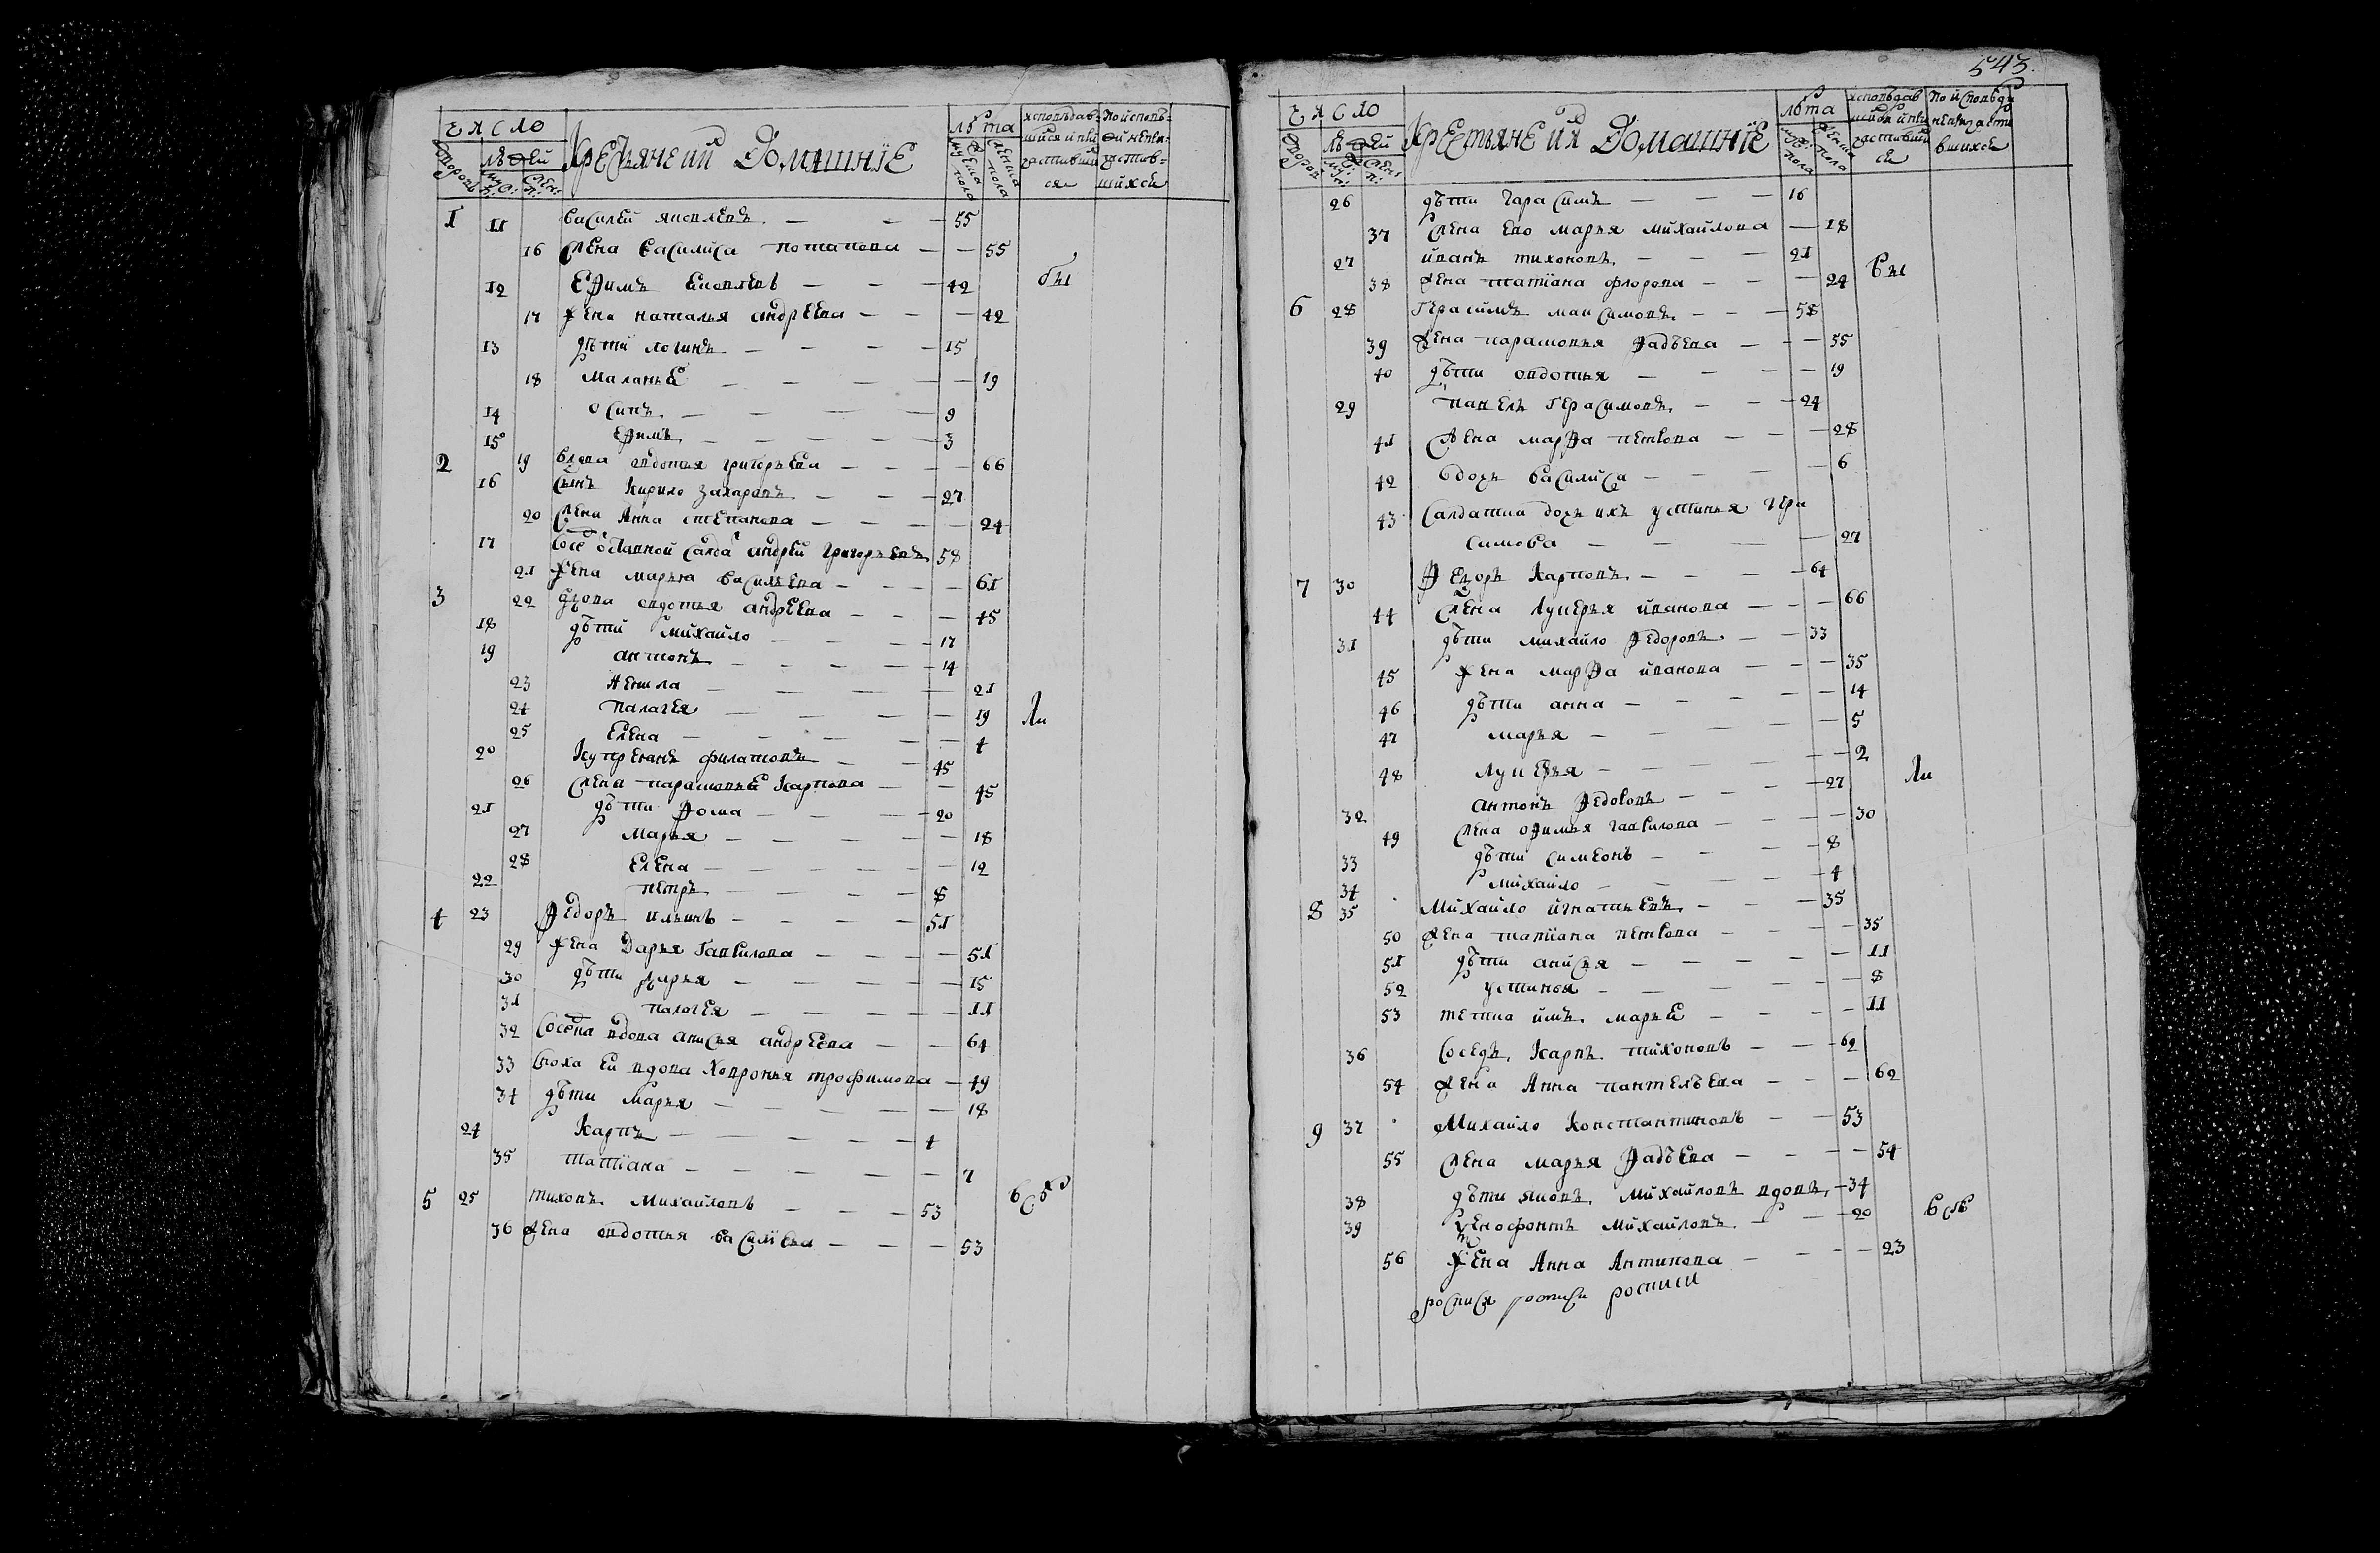 число
крестьяне и их домашние
лѣта
исповѣдав-
по исповѣ-
дворовъ
людей
шийся и при
ди непри-
муж: п:
жен: п:
мужеска пола
женска пола
частивший
частив-
ся
шийхся
1 11 василей яковлевъ — — 55
16 жена василиса потапова — — 55
12 Ефимъ яковлевъ — — 42 бы
17 жена наталья андреева — — 42
13 дѣти логинъ — — 15
18 маланьѣ — — 19
14 осипъ — — 9
15 Ефимъ — — 3
2 19 вдова овдотья григорьева — — 66
16 сынъ кирило захаровъ — — 27
20 жена Анна степанова — — 24
17 сосе отставной салда андрей григорьевъ 58
21 жена марья васильева — — 61
3 22 вдова овдотья андреева — — 45
18 дѣти михайло — — 17
19 антонъ — — 14
23 Текла — — 21
24 палагея — — 19 ли
25 Елена — — 4
20 куприянъ филатовъ — — 45
26 жена парасковьѣ карпова — — 45
21 дѣти фома — — 20
27 марья — — 18
28 Елена — — 12
22 петръ — — 8
4 23 федоръ ильинъ — — 51
29 жена Дарья гаврилова — — 51
30 дѣти дарья — — 15
31 палагея — — 11
32 соседка вдова анисья андреева — — 64
33 сноха ей вдова ховронья трофимова — 49
34 дѣти марья — — 18
24 карпъ — — 4
35 татiана — — 7
5 25 тихонъ михайловъ — — 53 всѣ
36 жена овдотья василiева — — 53
543.
число
крестьяне и их домашнiе
лѣта
исповѣдав
по исповѣди
дворов
людей
шийся и при
неприча сти
муж: п:
жен: п:
мужеска пола
женска пола
частивший
вшихся
ся
26 дѣти гарасимъ — — 16
37 жена ево марья михайлова — 18
27 иванъ тихоновъ — — 21
38 жена татiана флорова — — 24 бы
6 28 герасимъ максимовъ — — 58
39 жена парасковья фадѣева — — 55
40 дѣти овдотья — — 19
29 павелъ герасимовъ — — 24
41 жена марфа петрова — — 28
42 дочь василиса — — 6
43 салдатка дочь ихъ устинья гера
симова — — 27
7 30 федоръ карповъ — — 64
44 жена лукерья иванова — — 66
31 дѣти михайло федоровъ — — 33
45 жена марфа иванова — — 35
46 дѣти анна — — 14
47 марья — — 5
48 лукерья — — 2
32 антонъ федоровъ — — 27 ли
49 жена офимья гаврилова — — 30
33 дѣти симеонъ — — 8
34 михайло — — 4
8 35 михайло игнатьевъ — — 35
50 жена татiана петрова — — 35
51 дѣти анисья — — 11
52 устинья — — 8
53 тетка имъ марьѣ — — 11
36 соседъ карпъ тихоновъ — — 62
54 жена Анна пантелѣева — — 62
9 37 михайло константиновъ — — 53
55 жена марья фадѣева — — 54
38 дѣти яковъ михайловъ вдовъ — 34
39 ксенофонтъ михайловъ — — 20 всѣ
56 жена Анна Антипова — — 23
росписи росписи росписи